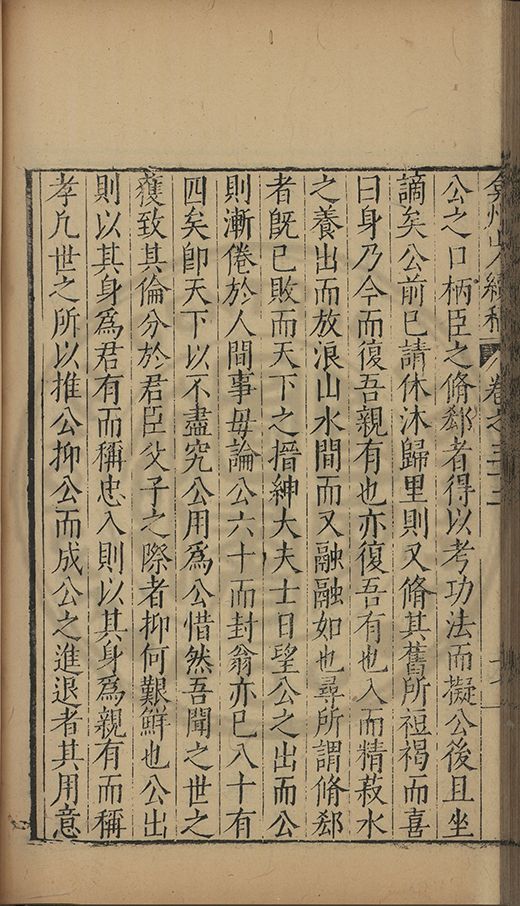 弇州山人續稿 卷之三十二
公之口柄臣之脩郄者得以考功法而擬公後且坐
謫矣公前已請休沐歸里則又脩其舊所袒褐而喜
曰身乃今而復吾親有也亦復吾有也入而精菽水
之養出而放浪山水間而又融融如也尋所謂脩郄
者旣已敗而天下之搢紳大夫士日望公之出而公
則漸倦於人間事毋論公六十而封翁亦已八十有
四矣卽天下以不盡究公用爲公惜然吾聞之世之
獲致其倫分於君臣父子之際者抑何艱鮮也公出
則以其身爲君有而稱忠入則以其身爲親有而稱
孝凢世之所以推公抑公而成公之進退者其用意